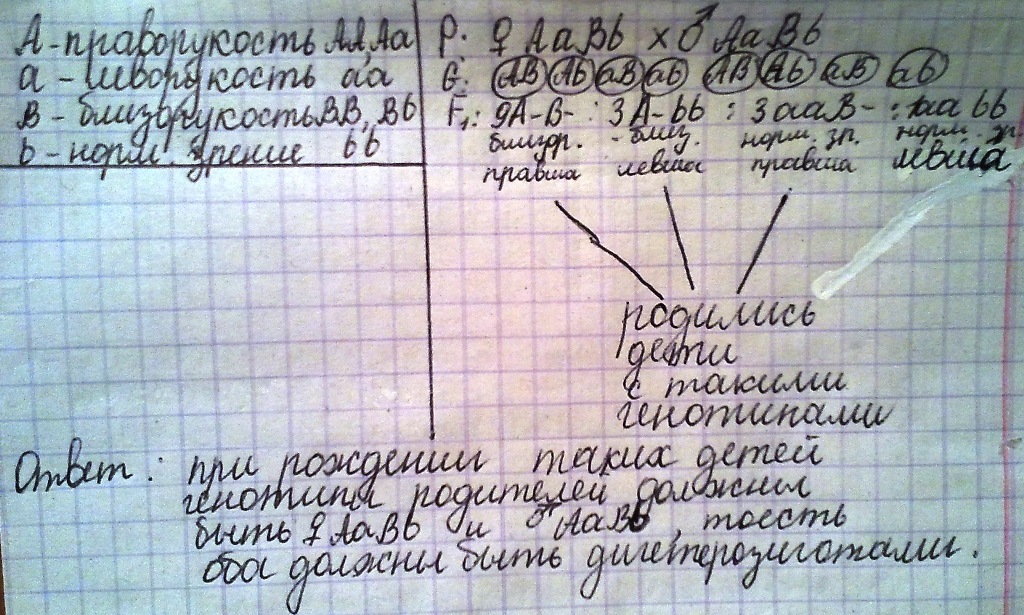 А - праворукость АА, Аа
а - леворукость аа
В - близорукость ВВ, Вb
b - норм. зрение bb
Р: ♀ АаВb × ♂ АаВb
G: АВ Аb аВ аb АВ Аb аВ аb
F₁: 9А-В- : 3А-bb : 3ааВ- : 1аа bb
близор. - близ. норм. зр. норм. зр.
правша левша правша левша
родились
дети
с такими
генотипами
Ответ: при рождении таких детей
генотипы родителей должны
быть ♀ АаВb и ♂ АаВb, тоесть
оба должны быть дигетерозиготами.